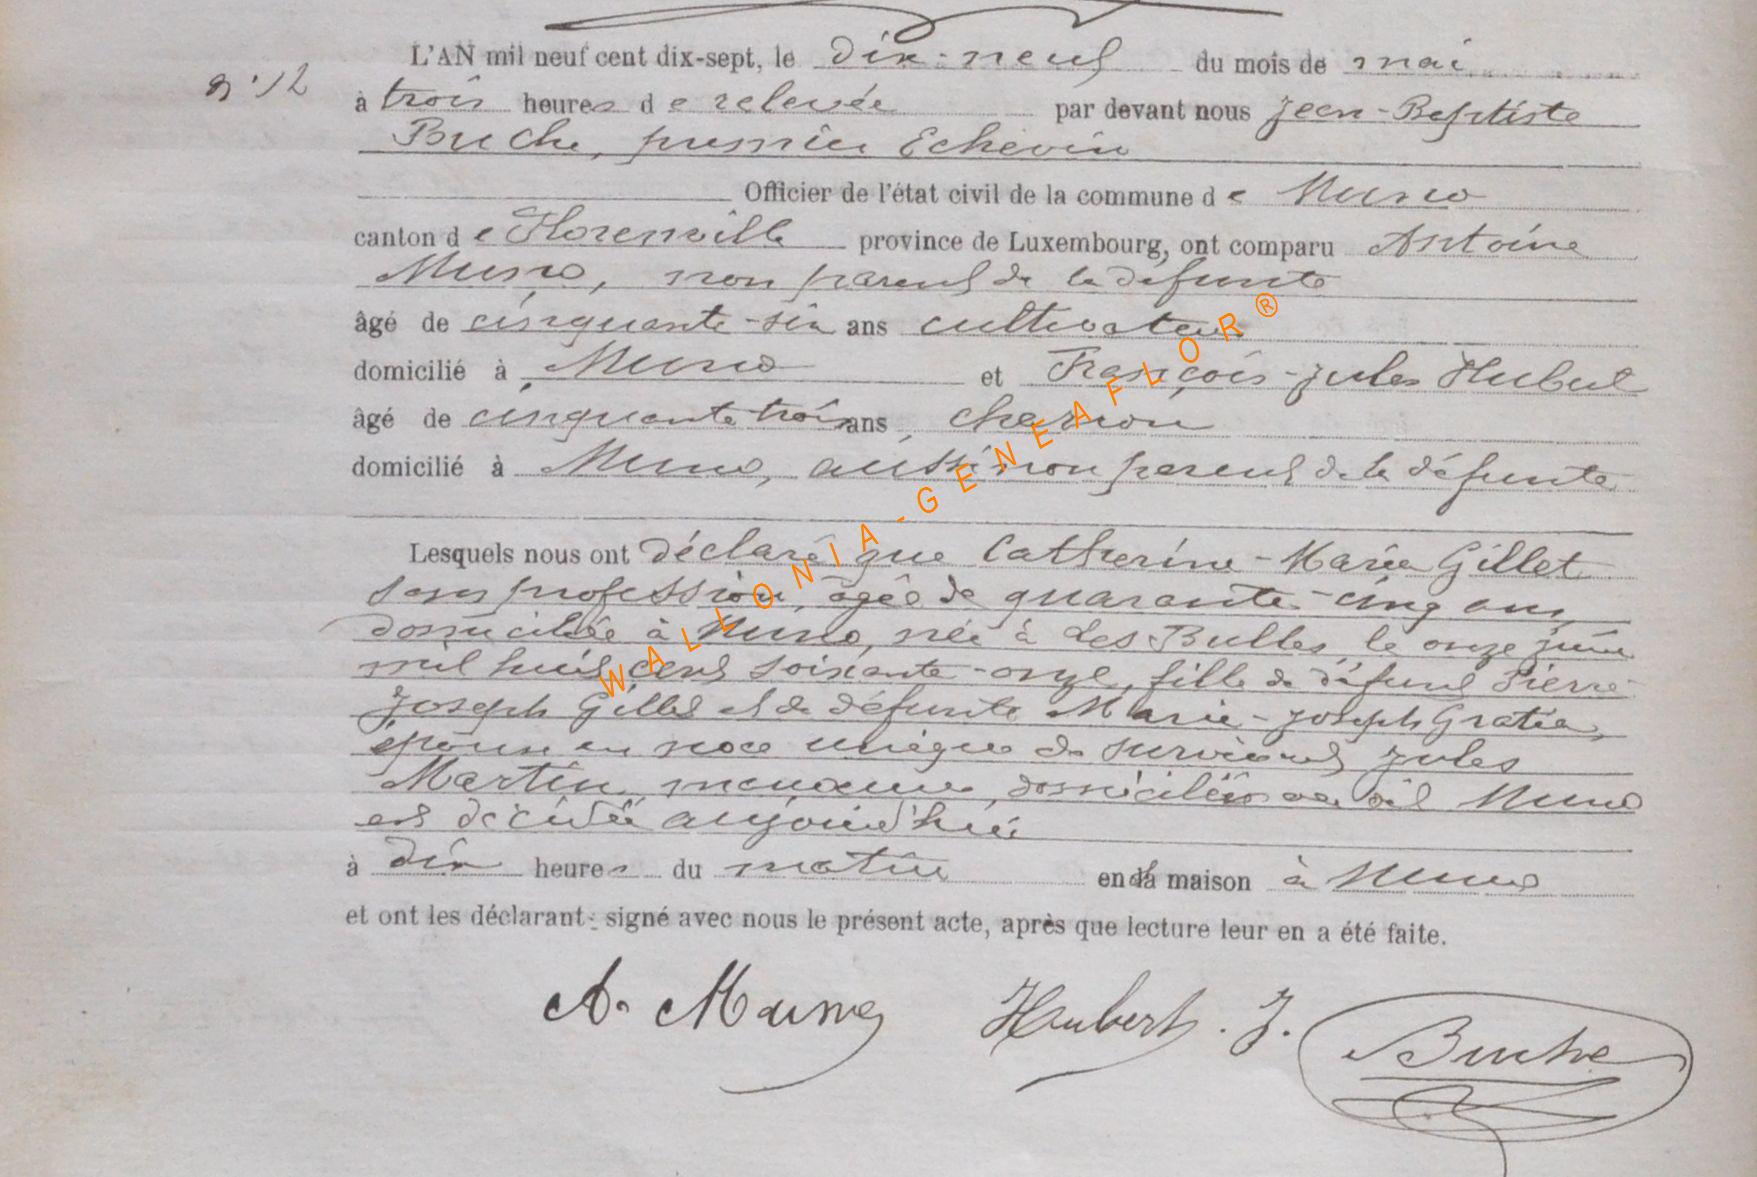 L'AN mil neuf cent dix-sept, le dix-neuf du mois de mai
n° 12
à trois heures de relevée par devant nous Jean-Baptiste
Buche, premier Echevin
Officier de l'état civil de la commune de Muno
canton de Florenville province de Luxembourg, ont comparu Antoine
Muno, non parent de la défunte
âgé de cinquante-six ans cultivateur
domicilié à Muno et François-Jules Hubert
âgé de cinquante trois ans, charron
domicilié à Muno, aussi non parent de la défunte
Lesquels nous ont déclaré que Catherine-Marie Gillet
sans profession, âgée de quarante-cinq ans,
domiciliée à Muno, née à Les Bulles le onze juin
mil huit cent soixante-onze, fille de défunt Pierre
Joseph Gillet et de défunte Marie-Joseph Gratia,
épouse en noce unique de survivant Jules
Martin, domiciliés Muno
est décédée aujourd'hui
à dix heures du matin en sa maison à Muno
et ont les déclarants signé avec nous le présent acte, après que lecture leur en a été faite.
A. Muno Hubert. J. Buche
WALLONIA-GENEAFLOR®